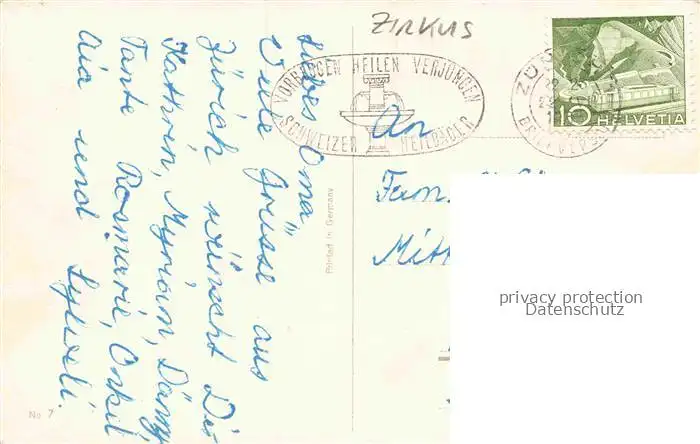 ZIRKUS
VORBEUGEN HEILEN VERJÜNGEN
SCHWEIZER HEILBÄDER
10 HELVETIA
Liebes Oma"
Viele Grüsse aus
Zürich wünscht Dir
Kathrin, Myriam,
Tante Rosmarie, Onkel
und
An
Fam.
Printed in Germany
No 7
privacy protection
Datenschutz